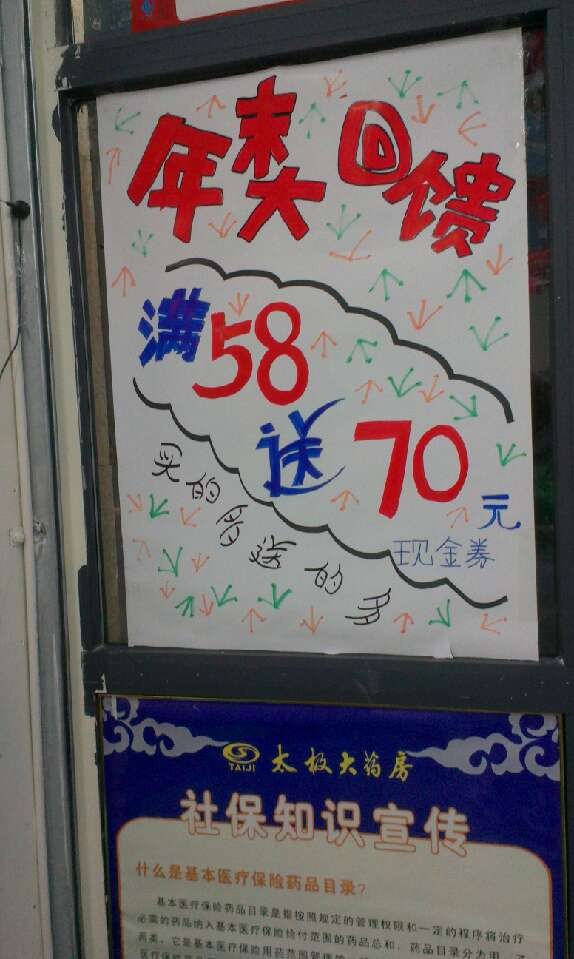 年末大回馈
满58
送70元
现金券
买的多送的多
TAIJI 太极大药房
社保知识宣传
什么是基本医疗保险药品目录?
基本医疗保险药品目录是指按照规定的管理权限和一定的程序将治疗
必需的药品纳入基本医疗保险给付范围的药品总和，药品目录分为甲、乙
两类，它是基本医疗保险用药范围管理的